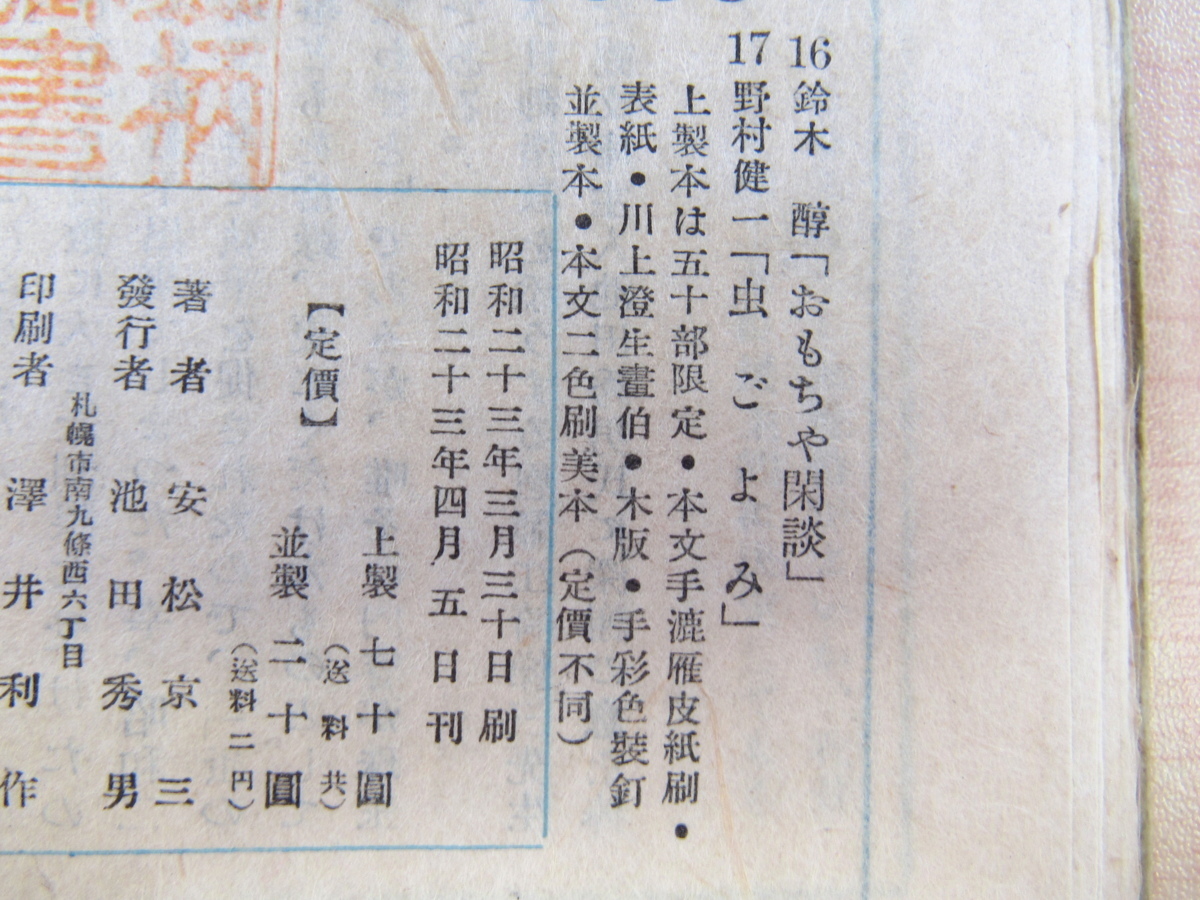 16 鈴木 醇「おもちや閑談」
17 野村健一「虫ごよみ」
上製本は五十部限定・本文手漉雁皮紙刷・
表紙・川上澄生畫伯・木版・手彩色裝釘
並製本・本文二色刷美本（定價不同）
昭和二十三年三月三十日 刷
昭和二十三年四月 五 日 刊
【定價】
上製 七十圓
（送料共）
並製 二十圓
（送料二円）
著者 安松京三
發行者 池田秀男
札幌市南九條西六丁目
印刷者 澤井利作
柄
書